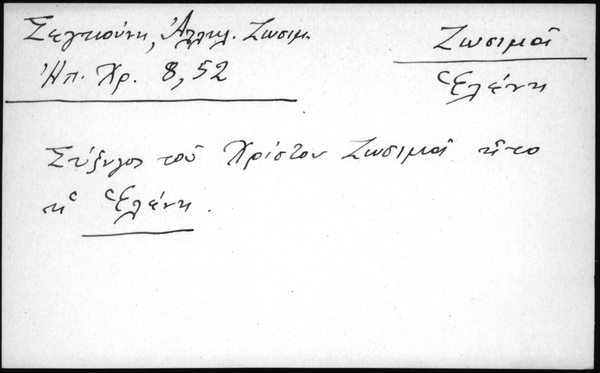 Σεγκούνη, Ἀλληλ. Ζωσιμ.
Ἠπ. Χρ. 8, 52
Ζωσιμᾶ
Ἑλένη
Σύζυγος τοῦ Χρίστου Ζωσιμᾶ ἦτο
ἡ Ἑλένη.